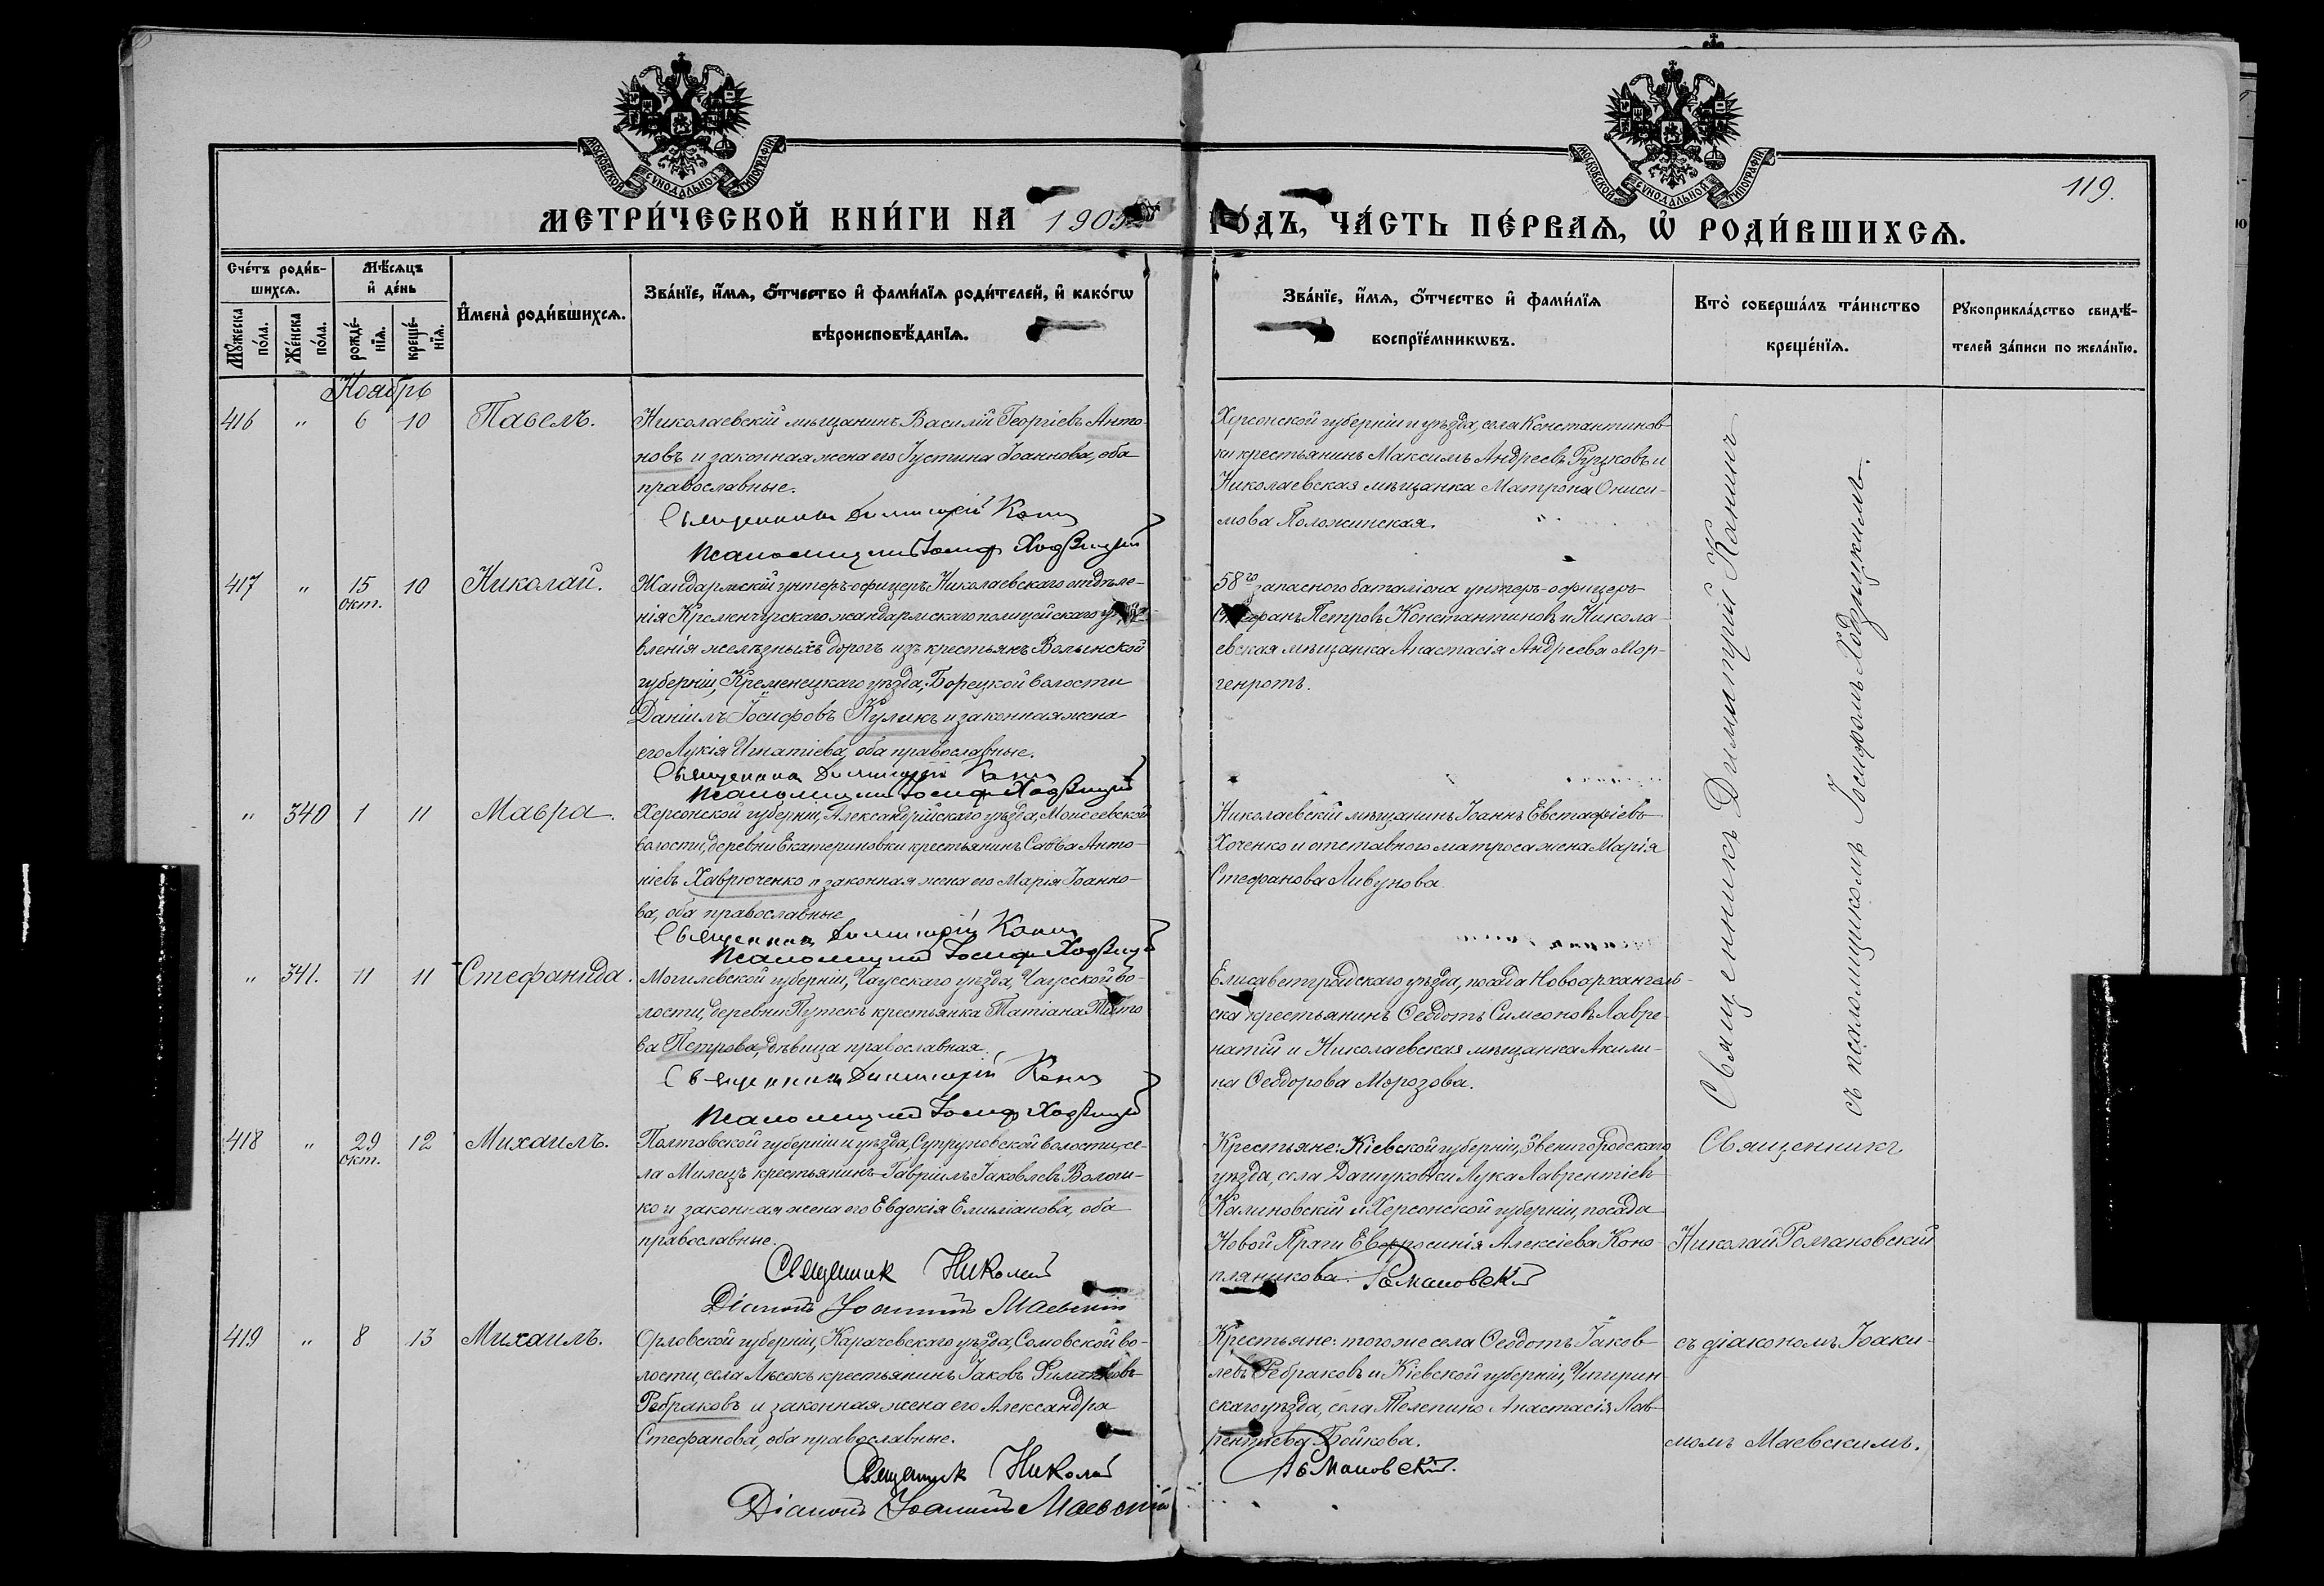 МОСКОВСКОЙ СѴНОДАЛЬНОЙ ТИПОГРАФІИ
МОСКОВСКОЙ СѴНОДАЛЬНОЙ ТИПОГРАФІИ
119.
МЕТРИ́ЧЕСКОЙ КНИ́ГИ НА 1905
ГО́ДЪ, ЧА́СТЬ ПЕ́РВАѦ, Ѡ҆ РОДИ́ВШИХСѦ.
Сче́тъ роди́в-
шихсѧ.
Мꙋ́жеска по́ла.
Же́нска по́ла.
Мѣ́сѧцъ и҆ де́нь
рожде́-
нїѧ.
креще́-
нїѧ.
И҆мена̀ роди́вшихсѧ.
Зва́нїе, и҆́мѧ, ѻ҆́тчество и҆ фами́лїѧ роди́телей, и҆ како́гѡ
вѣроисповѣ́данїѧ.
Зва́нїе, и҆́мѧ, ѻ҆́тчество и҆ фами́лїѧ
воспрїе́мникѡвъ.
Кто̀ соверша́лъ та́инство
креще́нїѧ.
Рꙋкоприкла́дство свидѣ́-
телей за́писи по жела́нїю.
Ноябрь
416 " 6 10 Павелъ.
Николаевскій мѣщанинъ Василій Георгіевъ Анто-
новъ и законная жена его Іустина Іоаннова, оба
православные.
Священникъ Димитрій Канин
Псаломщикъ Іосиф Ходзицкій
Херсонской губерніи и уѣзда, села Константинов-
ки крестьянинъ Максимъ Андреевъ Руцковъ и
Николаевская мѣщанка Матрона Ониси-
мова Положинская.
417 " 15 окт. 10 Николай.
Жандармскій унтеръ-офицеръ Николаевскаго отдѣле-
нія Кременчугскаго жандармскаго полицейскаго
вленія желѣзныхъ дорогъ изъ крестьянъ Волынской
губерніи, Кременецкаго уѣзда, Борецкой волости
Даніилъ Іосифовъ Куликъ и законная жена
его Лукія Игнатіева, оба православные.
Священникъ Димитрій Канин
Псаломщикъ Іосиф Ходзицкій
58го запасного баталіона унтеръ-офицеръ
Стефанъ Петровъ Константиновъ и Никола-
евская мѣщанка Анастасія Андреева Мор-
генротъ.
" 340 1 11 Мавра.
Херсонской губерніи, Александрійскаго уѣзда, Моисеевской
волости, деревни Екатериновки крестьянинъ Савва Анто-
ніевъ Хаврюченко и законная жена его Марія Іоанно-
ва, оба православные
Священникъ Димитрій Канин
Псаломщикъ Іосиф Ходзицкій
Николаевскій мѣщанинъ Іоаннъ Евстафіевъ
Хоченко и отставного матроса жена Марія
Стефанова Ливунова.
" 341. 11 11 Стефанида.
Могилевской губерніи, Чаусскаго уѣзда, Чаусской во-
лости, деревни Путскъ крестьянка Татіана Тито
ва Петрова, дѣвица православная.
Священникъ Димитрій Канин
Псаломщикъ Іосиф Ходзицкій
Елисаветградскаго уѣзда, посада Новоархангель-
ска крестьянинъ Ѳеодотъ Симеоновъ Лавре-
натій и Николаевская мѣщанка Акили-
на Ѳеодорова Морозова.
Священникъ Димитрій Канинъ
съ псаломщикомъ Іосифомъ Ходзицкимъ.
418 " 29 окт. 12 Михаилъ.
Полтавской губерніи и уѣзда, Супруновской волости, се-
ла Милецъ крестьянинъ Гавріилъ Іаковлевъ Волош-
ко и законная жена его Евдокія Емиліанова, оба
православные.
Священник Николай
Діаконъ Іоакимъ Маевскій
Крестьяне: Кіевской губерніи, Звенигородскаго
уѣзда, села Дашуковки Лука Лаврентіевъ
Калиновскій и Херсонской губерніи, посада
Новой Праги Евфросинія Алексіева Коно-
пляникова. Романовскій
Священникъ
Николай Романовскій
419 " 8 13 Михаилъ.
Орловской губерніи, Карачевскаго уѣзда, Сомовской во-
лости, села Лѣсокъ крестьянинъ Іаковъ
Ребраковъ и законная жена его Александра
Стефанова, оба православные.
Священник Николай
Діаконъ Іоакимъ Маевскій
Крестьяне: того же села Ѳеодотъ Іаков-
левъ Ребраковъ и Кіевской губерніи, Чигирин-
скаго уѣзда, села Телепино Анастасія Лав-
рентіева Бойкова.
Романовскій.
съ діакономъ Іоаки-
момъ Маевскимъ.